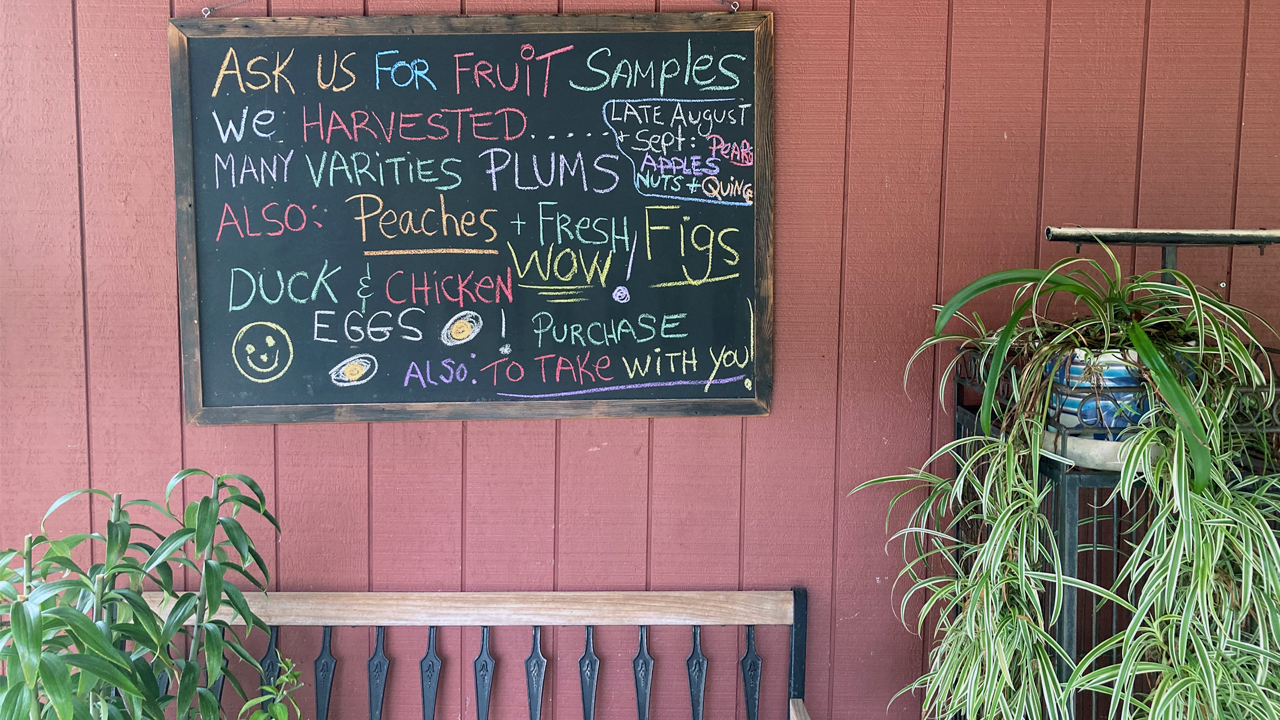 ASK US FOR FRUIT SAMPLES
WE HARVESTED......
MANY VARITIES PLUMS
LATE August
+ Sept: PEARS
APPLES
NUTS + QUINCE
ALSO: Peaches + FRESH Figs
WOW!
DUCK & CHICKEN
EGGS !
PURCHASE
ALSO: TO TAKE WITH YOU!